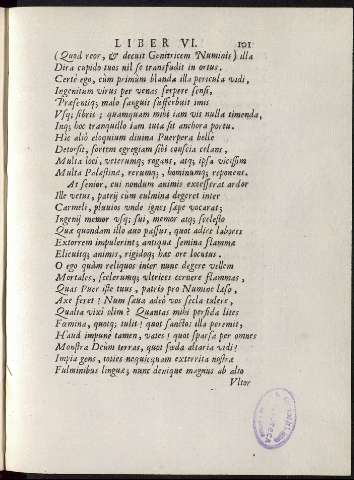 LIBER VI. 101
(Quod reor, & decuit Genitricem Numinis) illa
Dira cupido tuos nil se transfudit in ortus.
Certè ego, cùm primùm blanda illa pericula vidi,
Ingenitum virus per venas serpere sensi,
Præsentiq; malo sanguis sufferbuit imis
Vsq; fibris; quamquam mihi iam vis nulla timenda,
Inq; hoc tranquillo iam tuta sit anchora portu.
Hìc aliò eloquium diuina Puerpera belle
Detorsit, sortem egregiam sibi conscia celans,
Multa loci, veterumq; rogans, atq; ipsa vicissim
Multa Palæstinæ, rerumq;, hominumq; reponens.
At senior, cui nondum animis excesserat ardor
Ille vetus, patrij cùm culmina degeret inter
Carmeli, pluuios vnde ignes sæpe vocarat;
Ingenij memor vsq; sui, memor atq; scelesto
Quæ quondam illo auo passus, quot adire labores
Extorrem impulerint; antiquæ semina flammæ
Elicuitq; animis, rigidoq; hæc ore locutus.
O ego quàm reliquos inter nunc degere vellem
Mortales, scelerumq; vltrices cernere flammas,
Quas Puer iste tuus, patrio pro Numine læso,
Axe feret! Num sæua adeò vos secla tulere,
Qualia vixi olim? Quantas mihi perfida lites
Fœmina, quotq; tulit! quot sanctos illa peremit,
Haud impunè tamen, vates! quot sparsa per omnes
Monstra Deûm terras, quot fœda altaria vidi!
Impia gens, toties nequicquam exterrita nostræ
Fulminibus linguæ; nunc denique magnus ab alto
Vltor